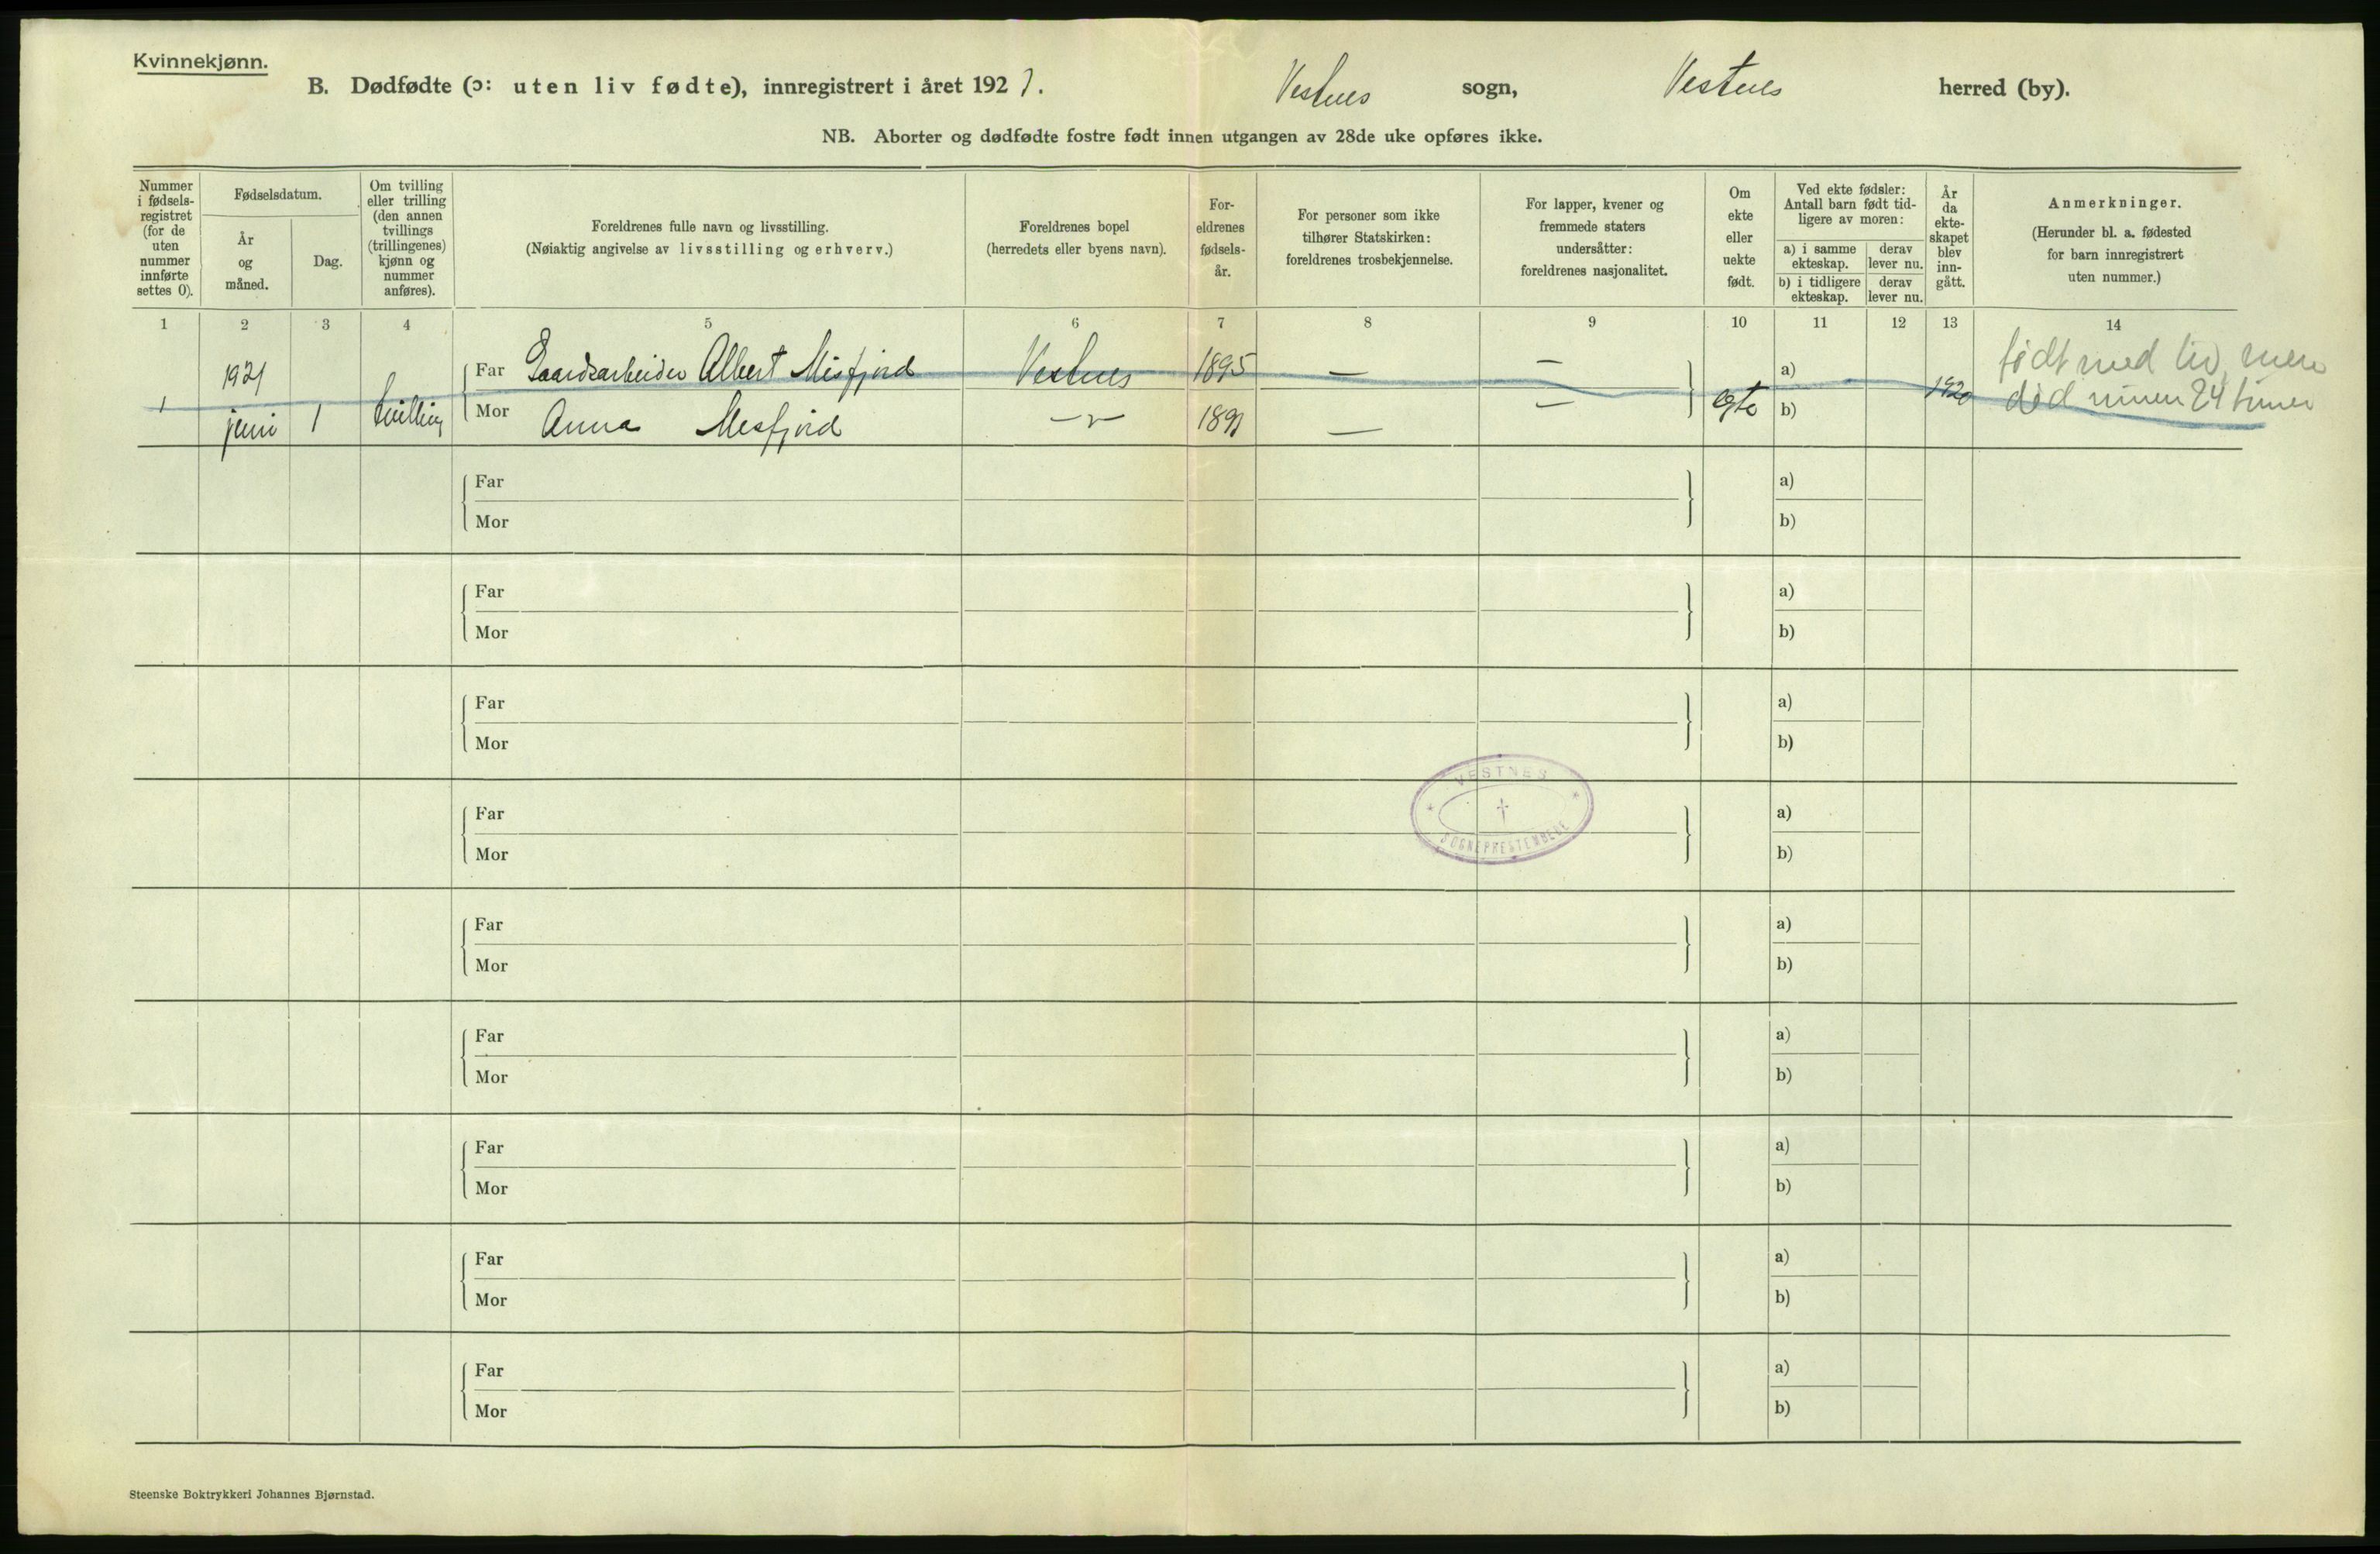 Kvinnekjønn.
B. Dødfødte (ɔ: uten liv fødte), innregistrert i året 1921. Vestnes sogn, Vestnes herred (by).
NB. Aborter og dødfødte fostre født innen utgangen av 28de uke opføres ikke.
Nummer i fødsels-registret (for de uten nummer innførte settes 0).
Fødselsdatum.
År og måned.
Dag.
Om tvilling eller trilling (den annen tvillings (trillingenes) kjønn og nummer anføres).
Foreldrenes fulle navn og livsstilling.
(Nøiaktig angivelse av livsstilling og erhverv.)
Foreldrenes bopel
(herredets eller byens navn).
For-eldrenes fødsels-år.
For personer som ikke tilhører Statskirken: foreldrenes trosbekjennelse.
For lapper, kvener og fremmede staters undersåtter: foreldrenes nasjonalitet.
Om ekte eller uekte født.
Ved ekte fødsler: Antall barn født tid-ligere av moren:
a) i samme ekteskap.
derav lever nu.
b) i tidligere ekteskap.
derav lever nu.
År da ekte-skapet blev inn-gått.
Anmerkninger.
(Herunder bl. a. fødested for barn innregistrert uten nummer.)
1 2 3 4 5 6 7 8 9 10 11 12 13 14
1921 Far Gaardsarbeider Albert Misfjord Vestnes 1895 — — a) født med liv, men
1 juni 1 tvilling Mor Anna Mesfjord —〃— 1891 — — egte b) 1920 død innen 24 timer
Far a)
Mor b)
Far a)
Mor b)
Far a)
Mor b)
Far a)
Mor b)
VESTNES
SOGNEPRESTEMBEDE
Far a)
Mor b)
Far a)
Mor b)
Far a)
Mor b)
Far a)
Mor b)
Far a)
Mor b)
Steenske Boktrykkeri Johannes Bjørnstad.